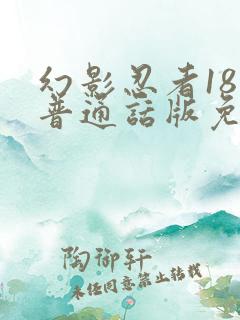 幻影忍者18
普通話版免
陶御轩
未经同意禁止转载